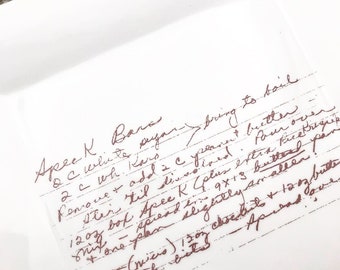 Spec K Bars
2 C White sugar > bring to boil
2 C Wh. Karo
Remove + add 2 C peanut butter
Stir til dissolved. Pour over
12 oz box Spec K (plus extra
mix - spread in 9x13 buttered pan
+ one pan slightly smaller
(micro) 12 oz chocolate + 12 oz butter
- Spread over